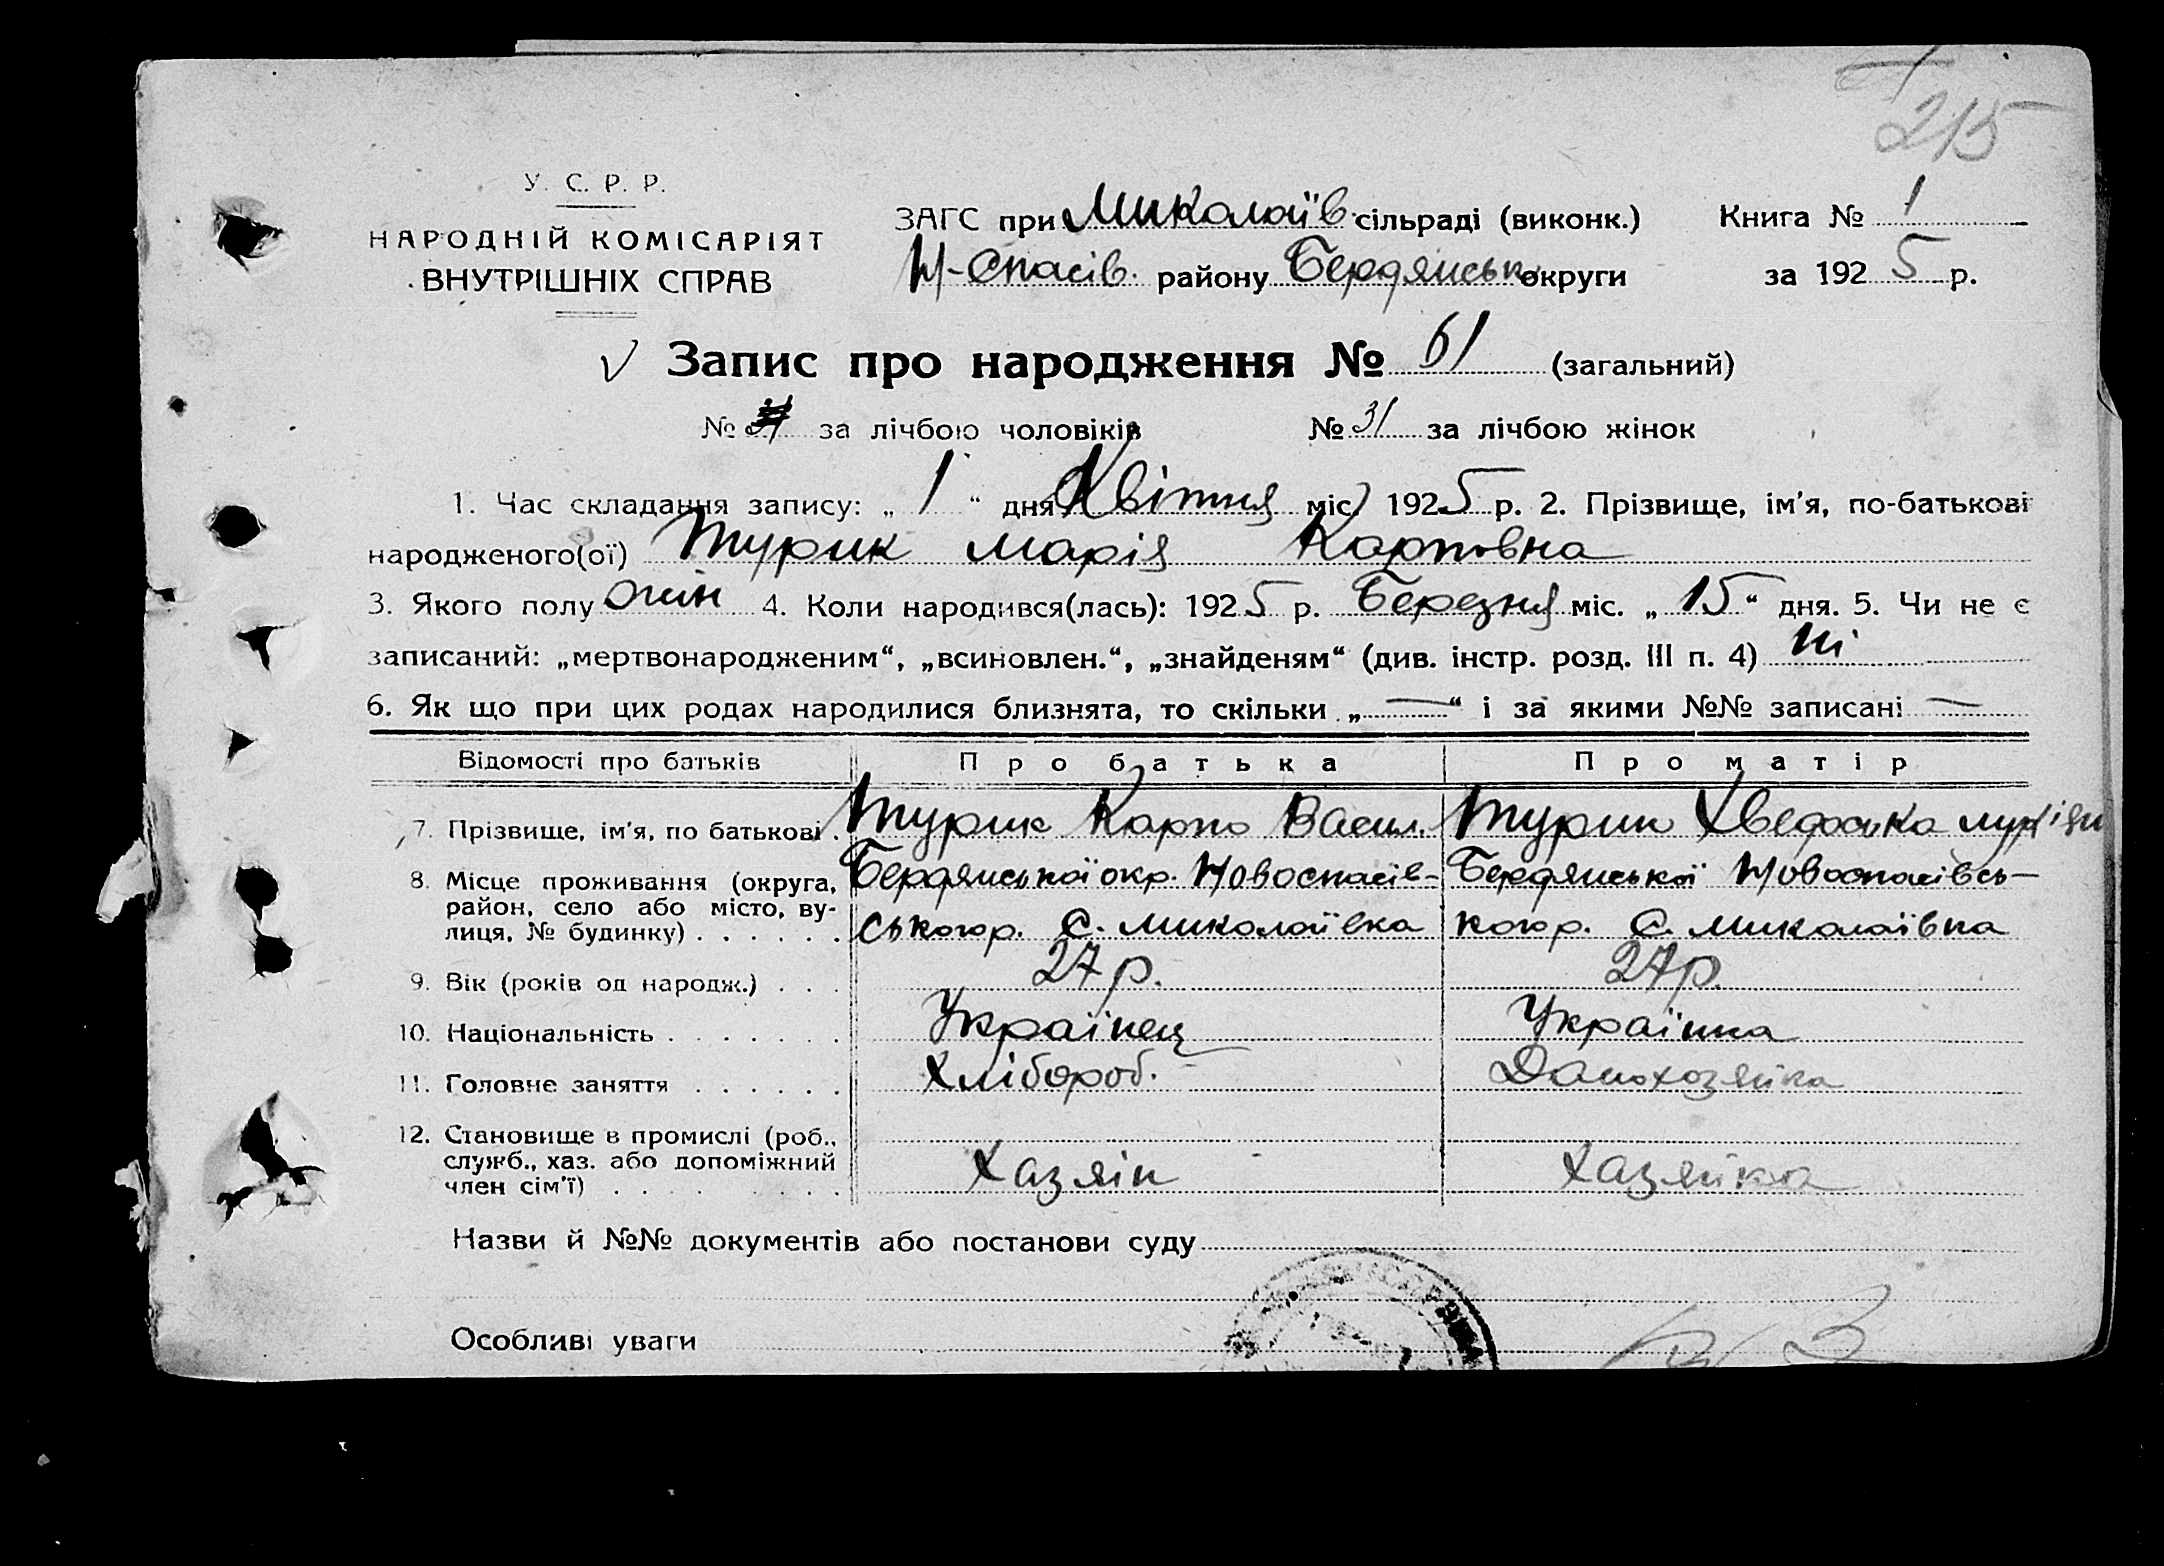 215
У. С. Р. Р.
НАРОДНІЙ КОМІСАРІЯТ
ВНУТРІШНІХ СПРАВ
ЗАГС при Миколаїв. сільраді (виконк.) Книга № 1
Н-Спасів. району Бердянськ округи за 1925 р.
Запис про народження № 61 (загальний)
№ за лічбою чоловіків № 31 за лічбою жінок
1. Час складання запису: „ 1 “ дня Квітня міс. 1925 р. 2. Прізвище, ім'я, по-батькові
народженого(ої) Турик Марія Карповна
3. Якого полу жін 4. Коли народився(лась): 1925 р. Березня міс. „ 15 “ дня. 5. Чи не є
записаний: „мертвонародженим“, „всиновлен.“, „знайденям“ (див. інстр. розд. III п. 4) ні
6. Як що при цих родах народилися близнята, то скільки „ — “ і за якими №№ записані —
Відомості про батьків Про батька Про матір
7. Прізвище, ім'я, по батькові. Турик Карпо Васил. Турик Хведоська
8. Місце проживання (округа, район, село або місто, вулиця, № будинку) . . . . . .
Бердянської окр. Новоспасів- Бердянської Новоспасівсь-
ького р. с. Миколаївка кого р. с. Миколаївка
9. Вік (років од народж.) . . . 27 р. 27 р.
10. Національність . . . . . . . Українец Українка
11. Головне заняття . . . . . . Хлібороб. Домохозяйка
12. Становище в промислі (роб.,
служб., хаз. або допоміжний
член сім'ї) . . . . . . . Хазяін Хазяйка
Назви й №№ документів або постанови суду
Особливі уваги